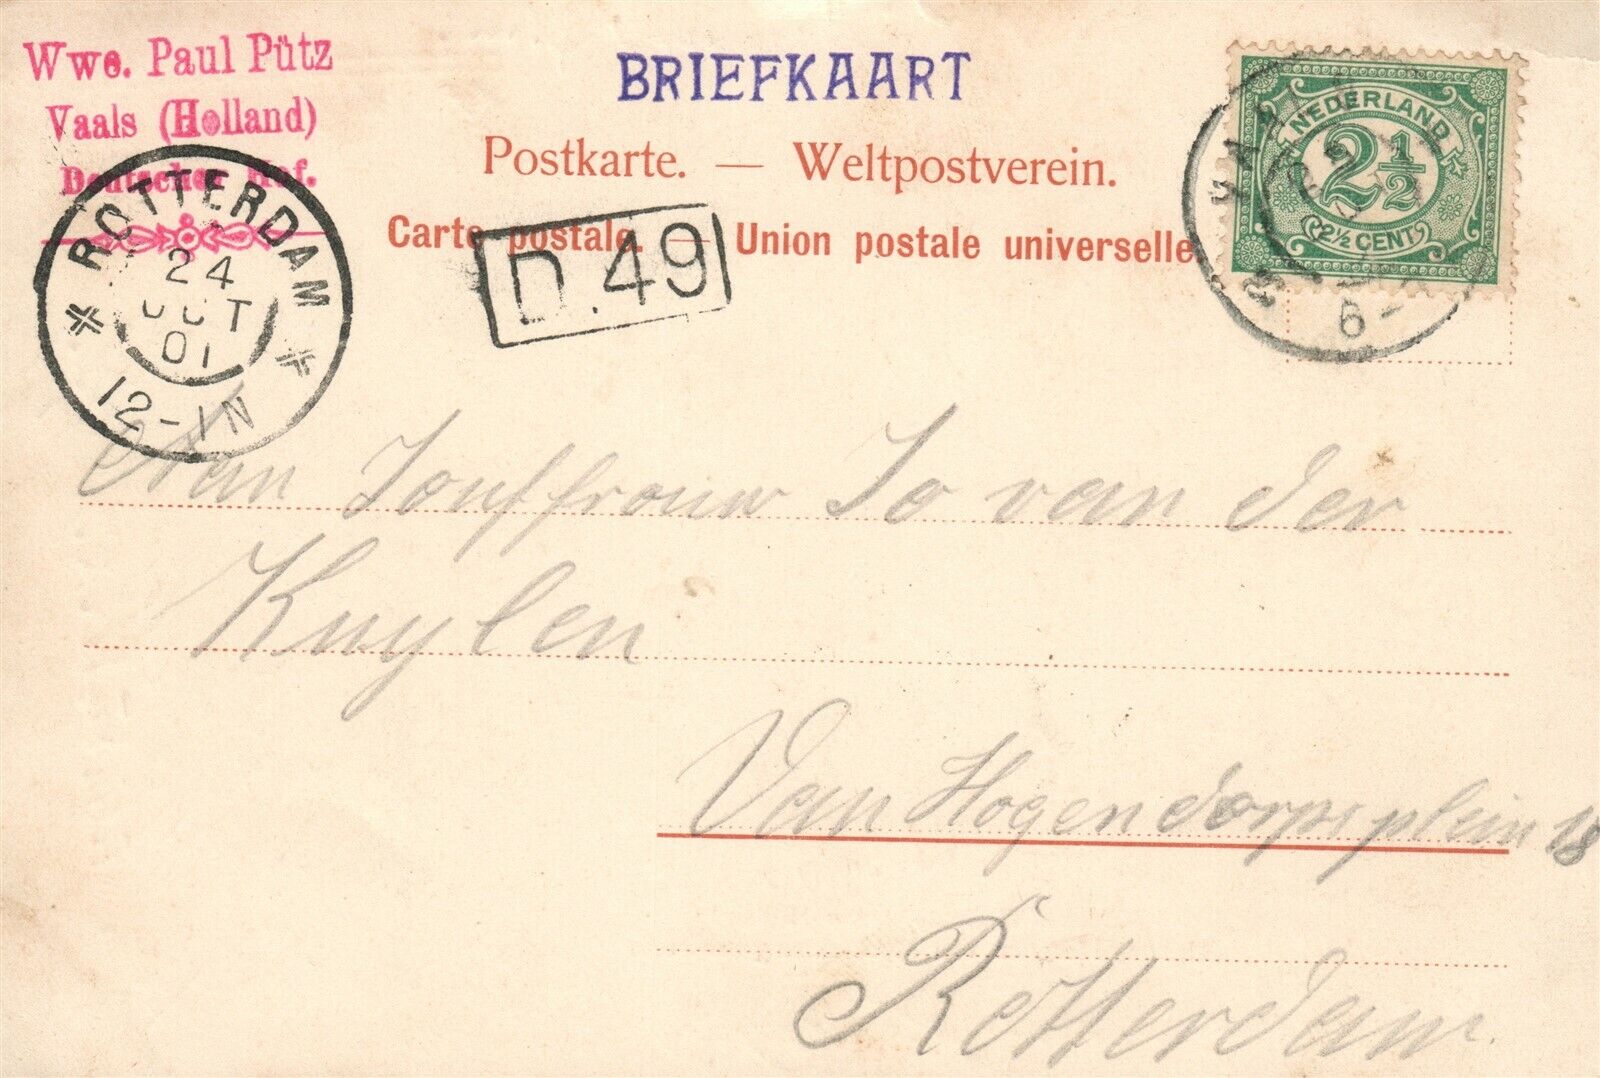 Wwe. Paul Pütz
Vaals (Holland)
Deutscher Hof.
BRIEFKAART
Postkarte. — Weltpostverein.
Carte postale. — Union postale universelle.
NEDERLAND
2 1/2
2½ CENT
6-
ROTTERDAM
24
OCT
01
12-1N
D.49
Aan Jouffrouw Jo van der
Kuylen
Van Hogendorpsplein 18
Rotterdam.